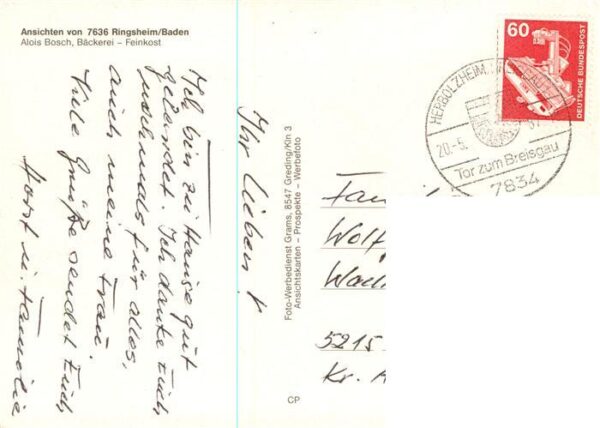 Ansichten von 7636 Ringsheim/Baden
Alois Bosch, Bäckerei – Feinkost
Ihr Lieben!
Ich bin zu Hause gut
gelandet. Ich danke Euch,
nochmals für alles,
auch meine Frau.
Viele Grüße sendet Euch,
Horst u. Familie
Foto-Werbedienst Grams, 8547 Greding/Kln 3
Ansichtskarten – Prospekte – Werbefoto
CP
60
DEUTSCHE BUNDESPOST
HERBOLZHEIM
20.-5.
Tor zum Breisgau
7834
Fam
Wolf
5215
Kr.